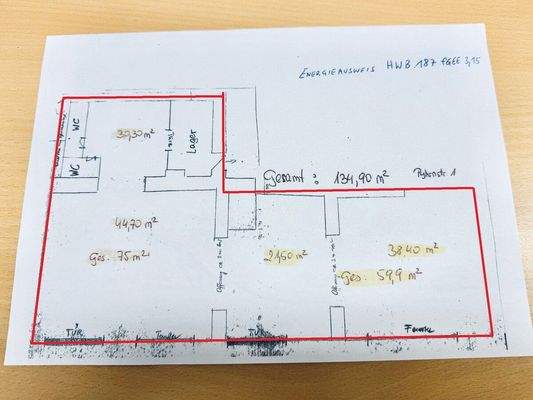 ENERGIEAUSWEIS HWB 187 fGEE 3,15
WC
WC
30,30 m²
Lager
Gesamt : 134,90 m²
44,70 m²
Ges. 75 m²
21,50 m²
38,40 m²
Ges. 59,9 m²
Öffnung ca. 3 m
Öffnung ca. 3 m
TÜR
TÜR
Fenster